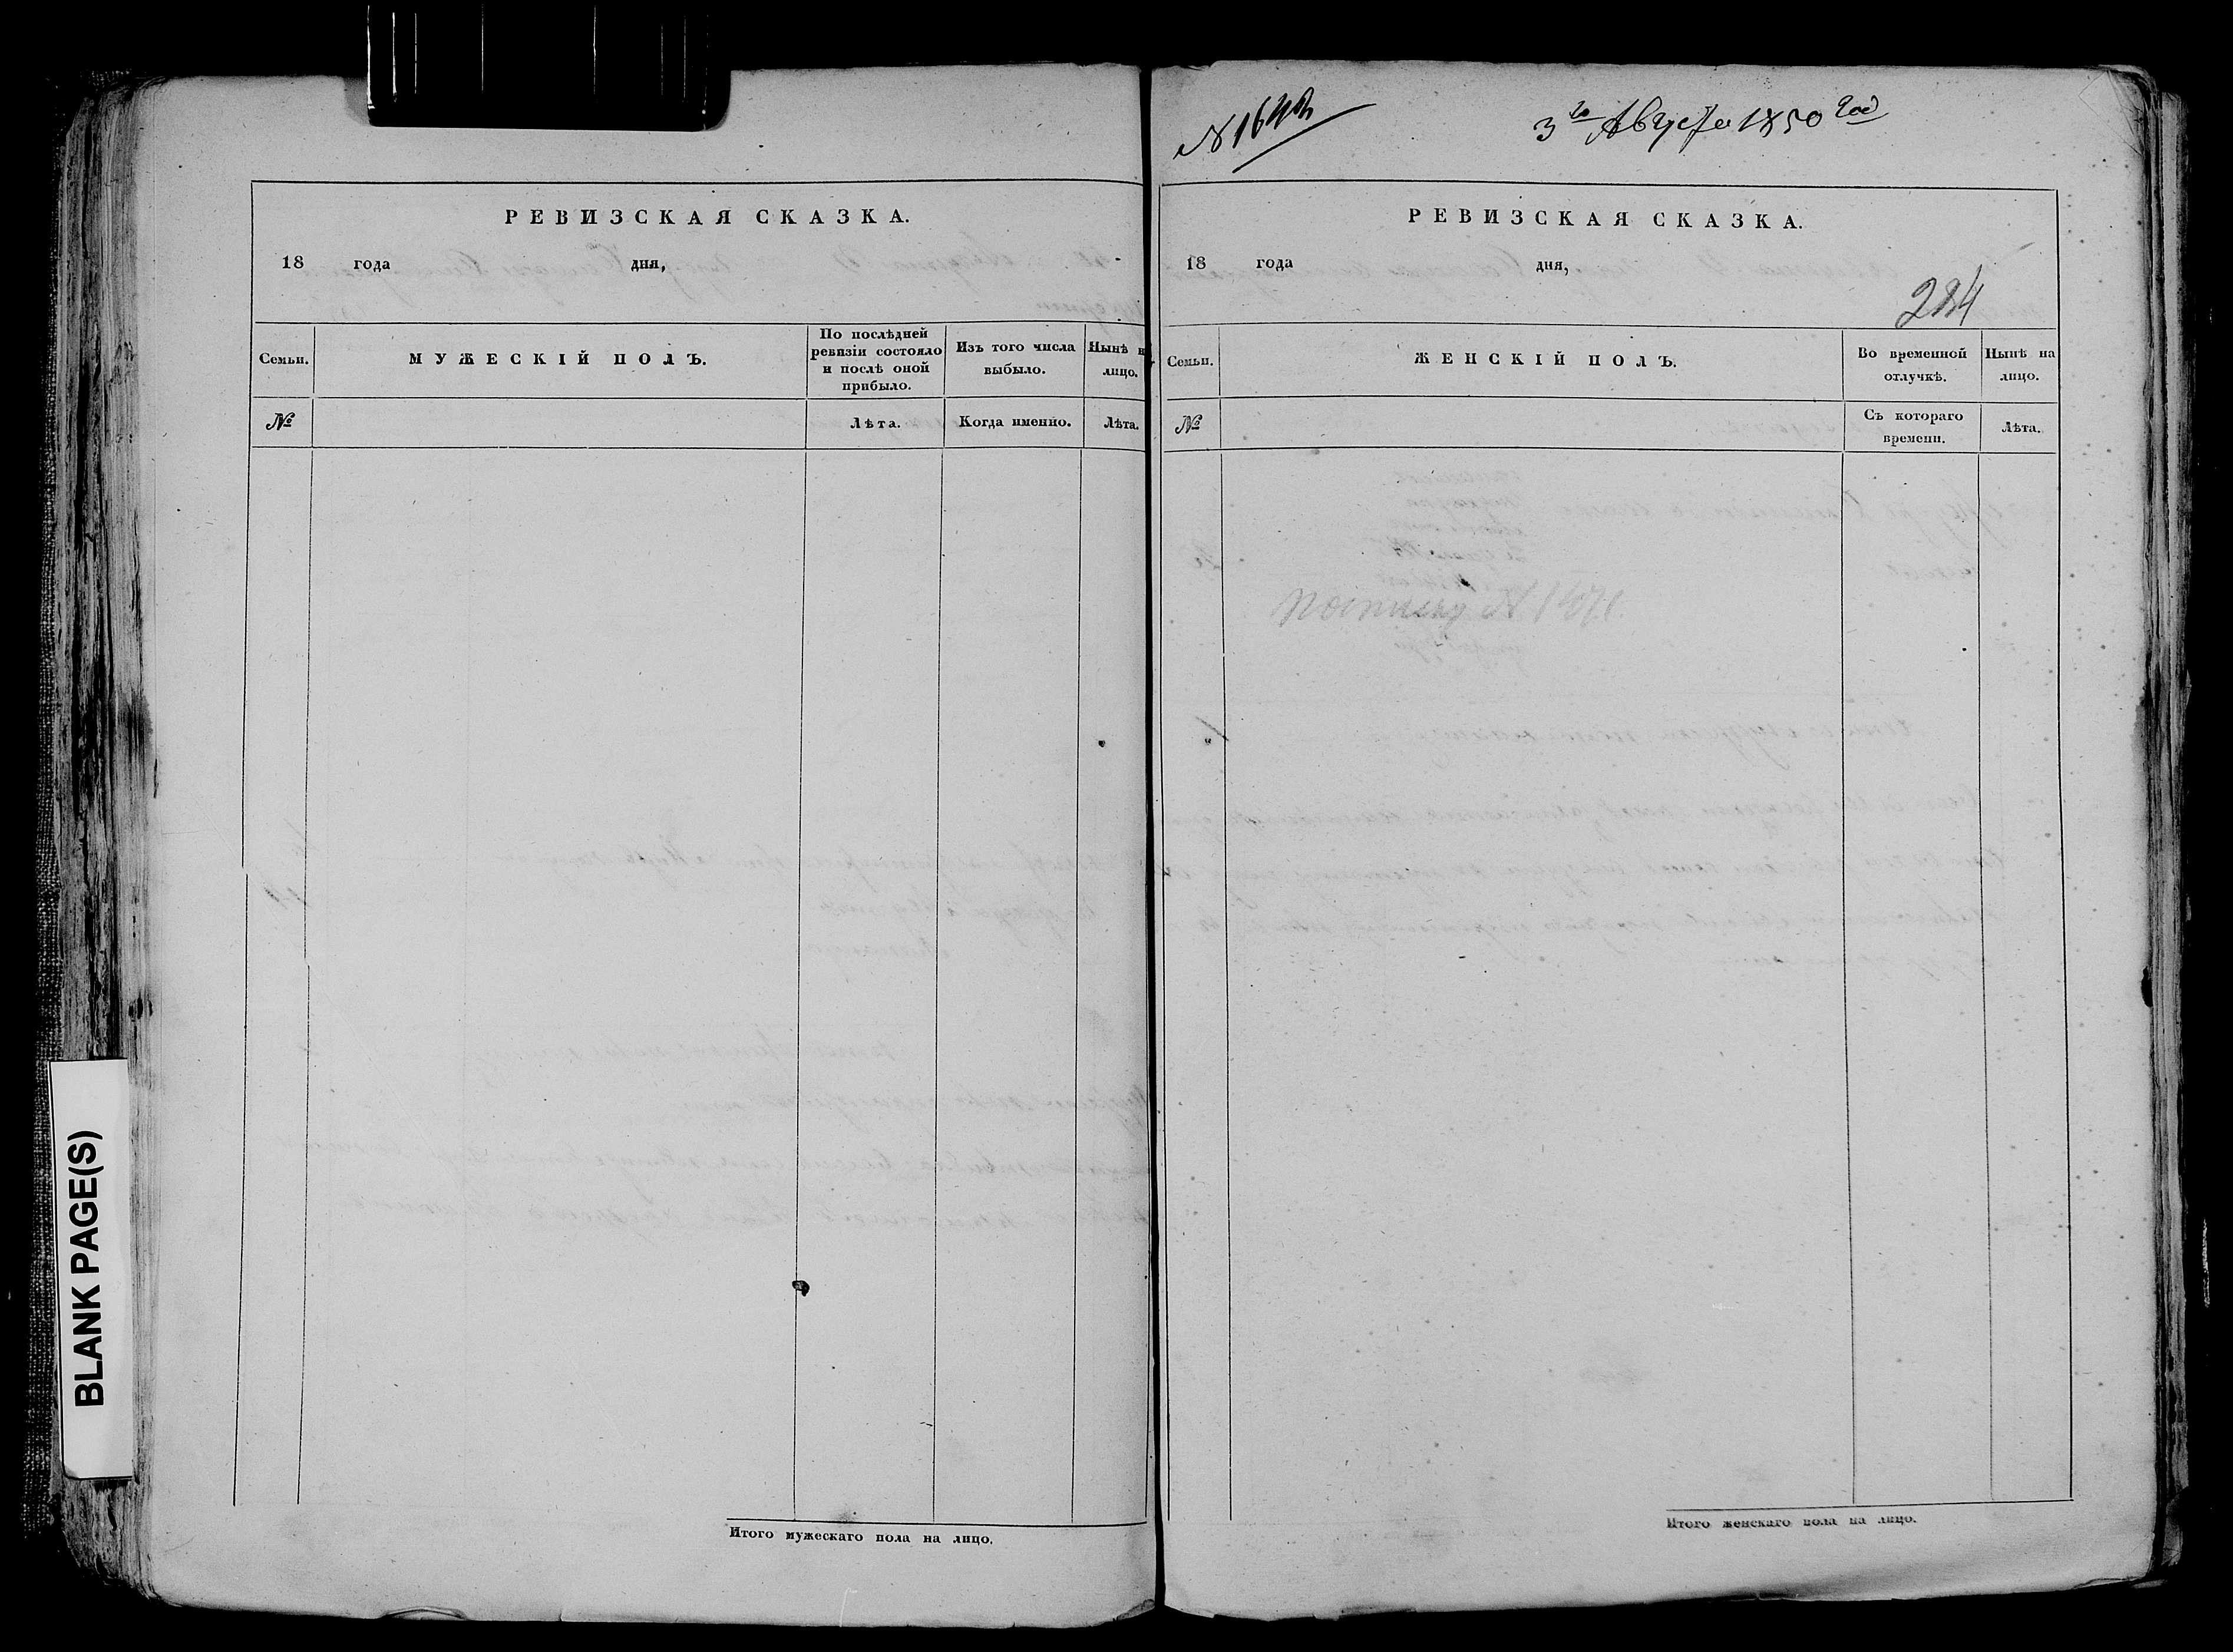 РЕВИЗСКАЯ СКАЗКА.
18 года дня,
Семьи.
МУЖЕСКІЙ ПОЛЪ.
По послѣдней
ревизіи состояло
и послѣ оной
прибыло.
Изъ того числа
выбыло.
Нынѣ н
лицо.
№
Лѣта.
Когда именно.
Лѣта.
Итого мужескаго пола на лицо.
BLANK PAGE(S)
3го Августа 1850 год
РЕВИЗСКАЯ СКАЗКА.
18 года дня,
284
Семьи.
ЖЕНСКІЙ ПОЛЪ.
Во временной
отлучкѣ.
Нынѣ на
лицо.
№
Съ котораго
времени.
Лѣта.
Итого женскаго пола на лицо.